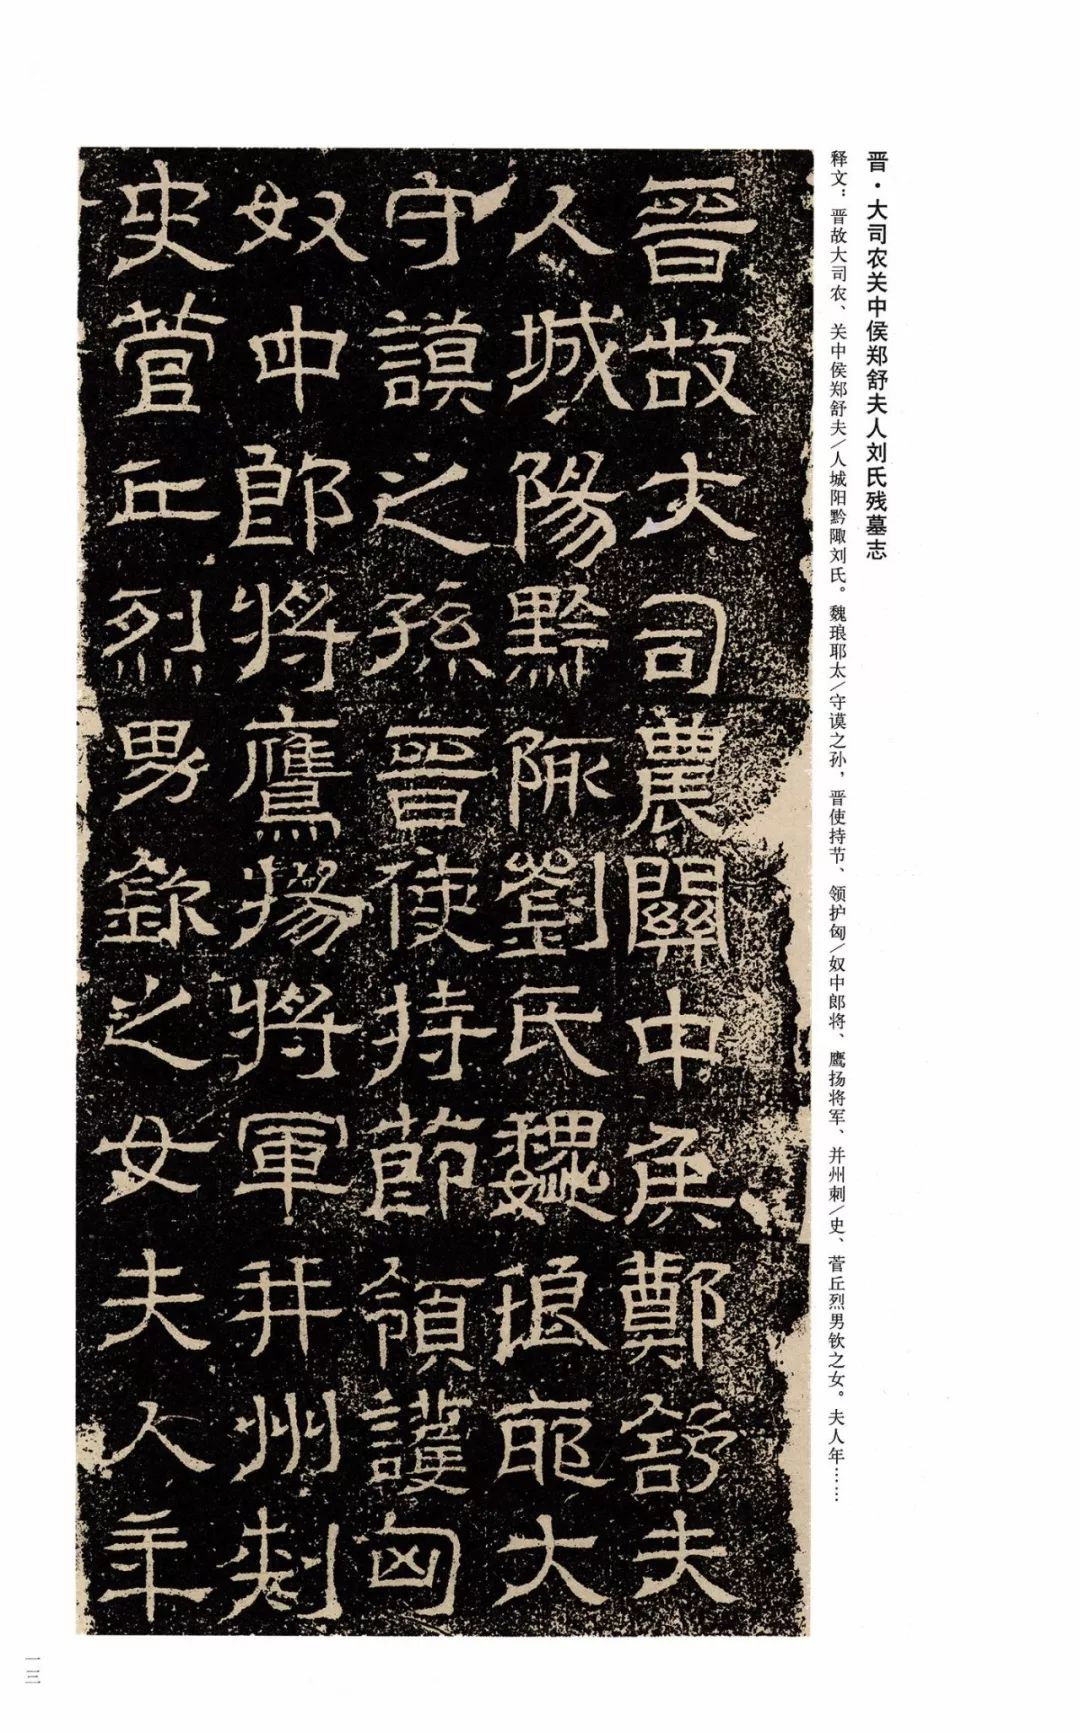 晋·大司农关中侯郑舒夫人刘氏残墓志
释文：晋故大司农、关中侯郑舒夫/人城阳黔陬刘氏。魏琅耶太/守谟之孙，晋使持节、领护匈/奴中郎将、鹰扬将军、并州刺/史、菅丘烈男钦之女。夫人年……
晉故大司農關中侯鄭舒夫
人城陽黔陬劉氏魏琅耶太
守謨之孫晉使持節領護匈
奴中郎將鷹揚將軍并州刺
史菅丘烈男欽之女夫人年
一三